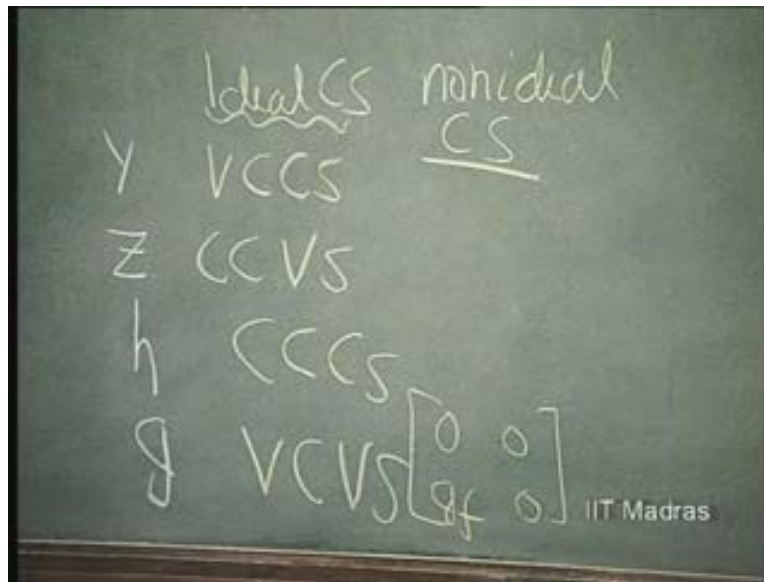 Ideal CS nonideal
CS
Y VCCS
Z CCVS
h CCCS
g VCVS [0 0
gf 0]
IIT Madras